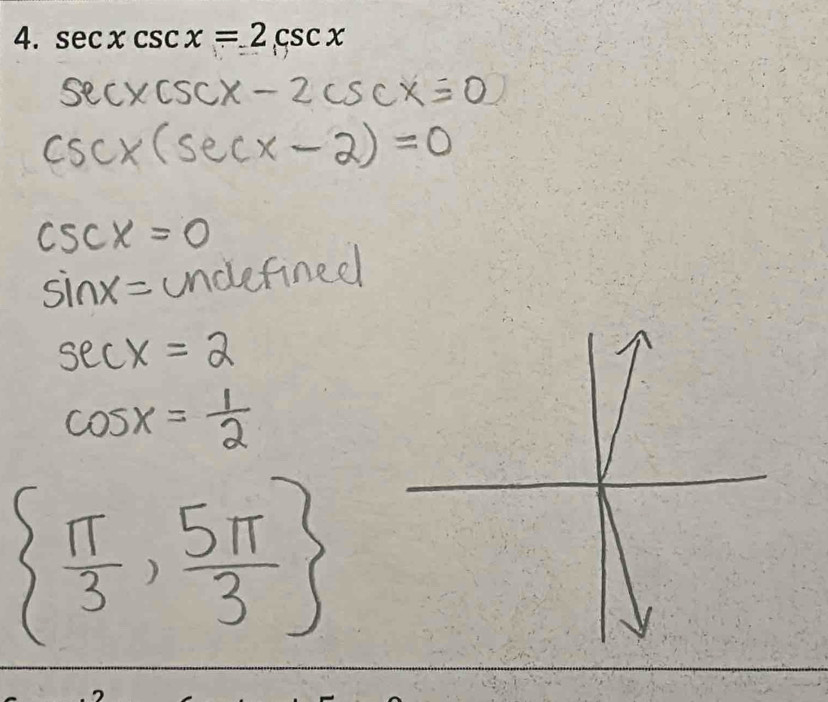 4. sec x csc x = 2 csc x
secx cscx - 2 cscx = 0
cscx (secx - 2) = 0
cscx = 0
sinx = undefined
secx = 2
cosx = 1/2
{π/3, 5π/3}